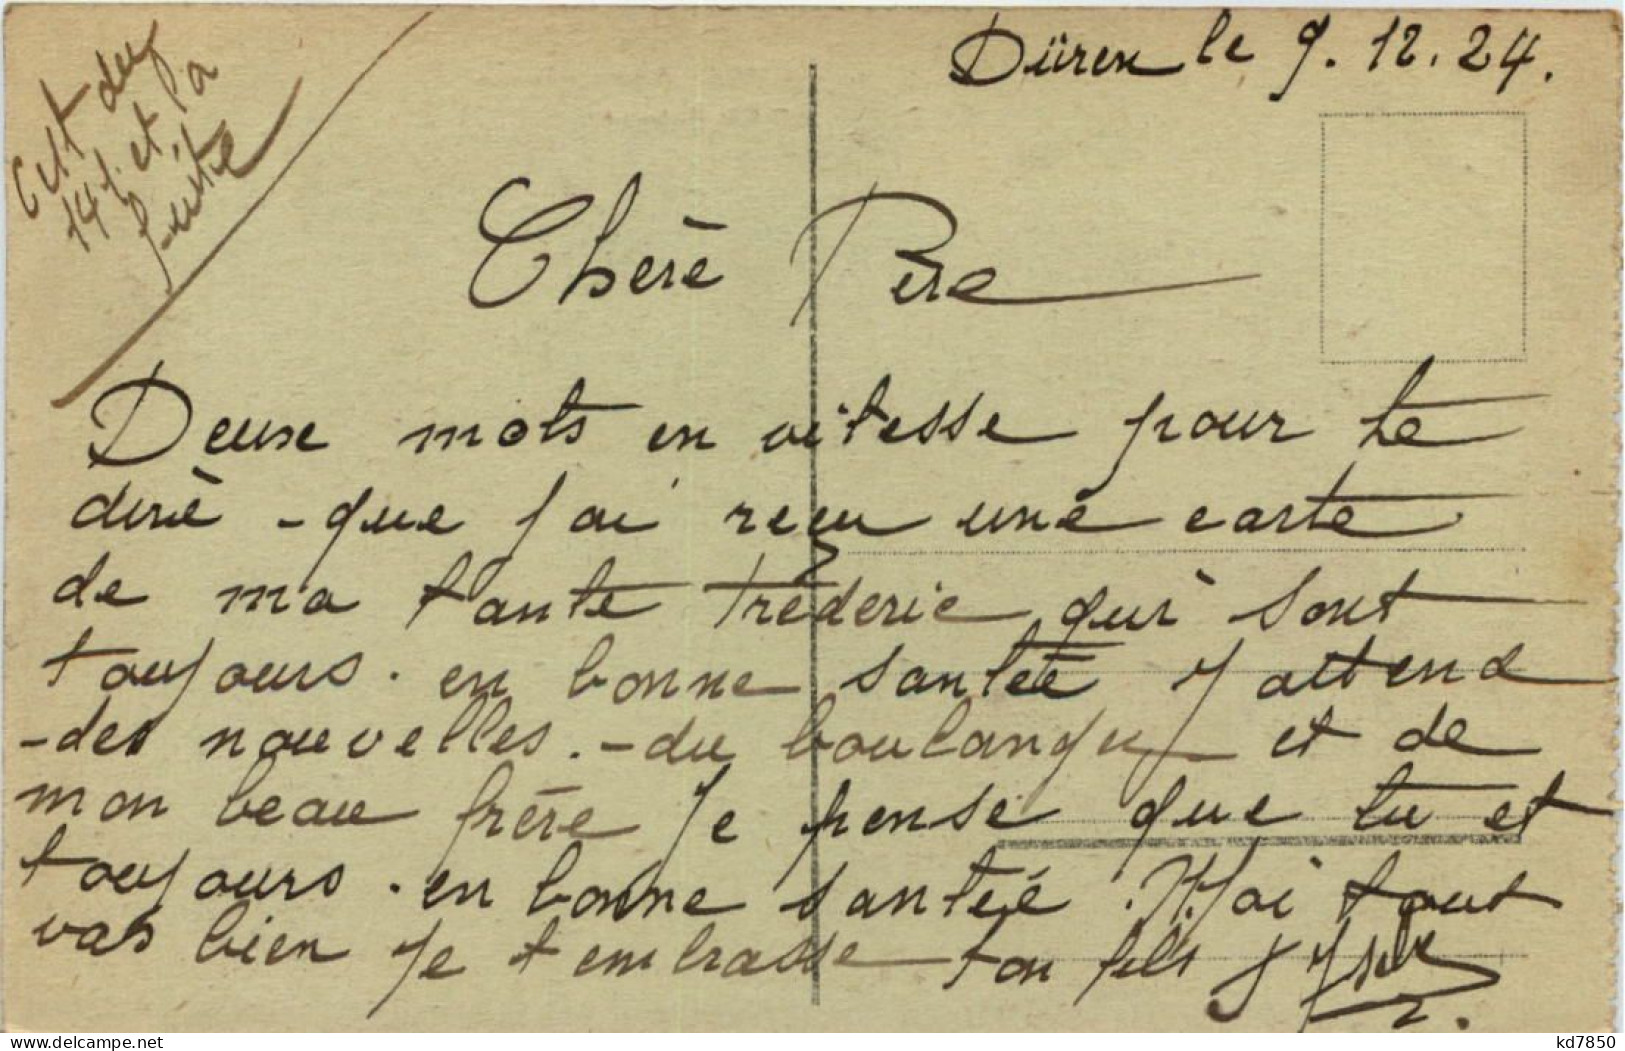 Düren le 9.12.24.
Cest du
14 et la
suite
Cherè Pere
Deuse mots en vitesse pour te
dirè - que j'ai reçu unè carte
de ma tante Fréderic qui sont
toujours. en bonne santée J attend
- des nouvelles. - du boulanger et de
mon beau frère Je pense que tu et
toujours. en bonne santée. Moi tout
vas bien Je t embrasse ton fils
kd7850